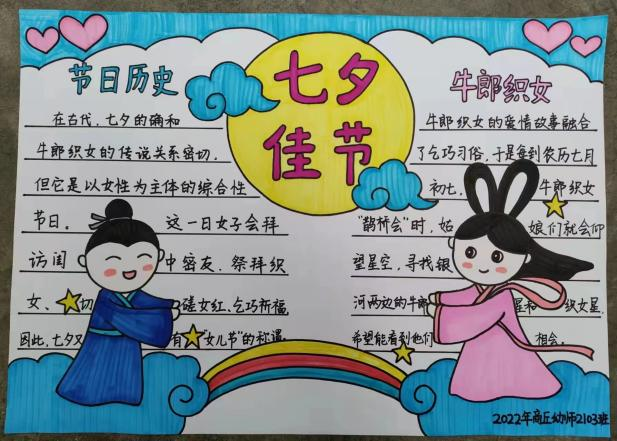 七夕
佳节
节日历史
在古代,七夕的确和
牛郎织女的传说关系密切,
但它是以女性为主体的综合性
节日。 这一日女子会拜
访闺 中密友,祭拜织
女、 切 磋女红、乞巧祈福,
因此,七夕又 有 "女儿节"的称谓。
牛郎织女
牛郎织女的爱情故事融合
了乞巧习俗,于是每到农历七月
初七, 牛郎织女
"鹊桥会"时,姑 娘们就会仰
望星空,寻找银
河两边的牛郎 星和 织女星,
希望能看到他们 相会。
2022年商丘幼师2103班